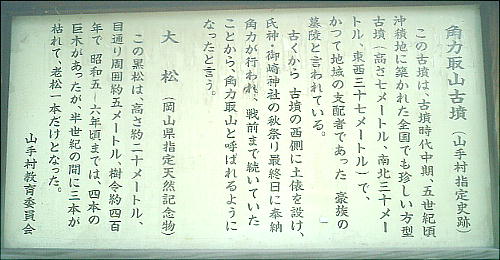 角力取山古墳（山手村指定史跡）
この古墳は、古墳時代中期、五世紀頃
沖積地に築かれた全国でも珍しい方型
古墳（高さ七メートル、南北三十メー
トル、東西三十七メートル）で、
かつて地域の支配者であった 豪族の
墓陵と言われている。
古くから 古墳の西側に土俵を設け、
氏神・御崎神社の秋祭り最終日に奉納
角力が行われ、戦前まで続いていた
ことから、角力取山と呼ばれるように
なったと言う。
大松（岡山県指定天然記念物）
この黒松は、高さ約二十メートル、
目通り周囲約五メートル、樹令約四百
年で 昭和五-六年頃までは、四本の
巨木があったが、半世紀の間に三本が
枯れて、老松一本だけとなった。
山手村教育委員会